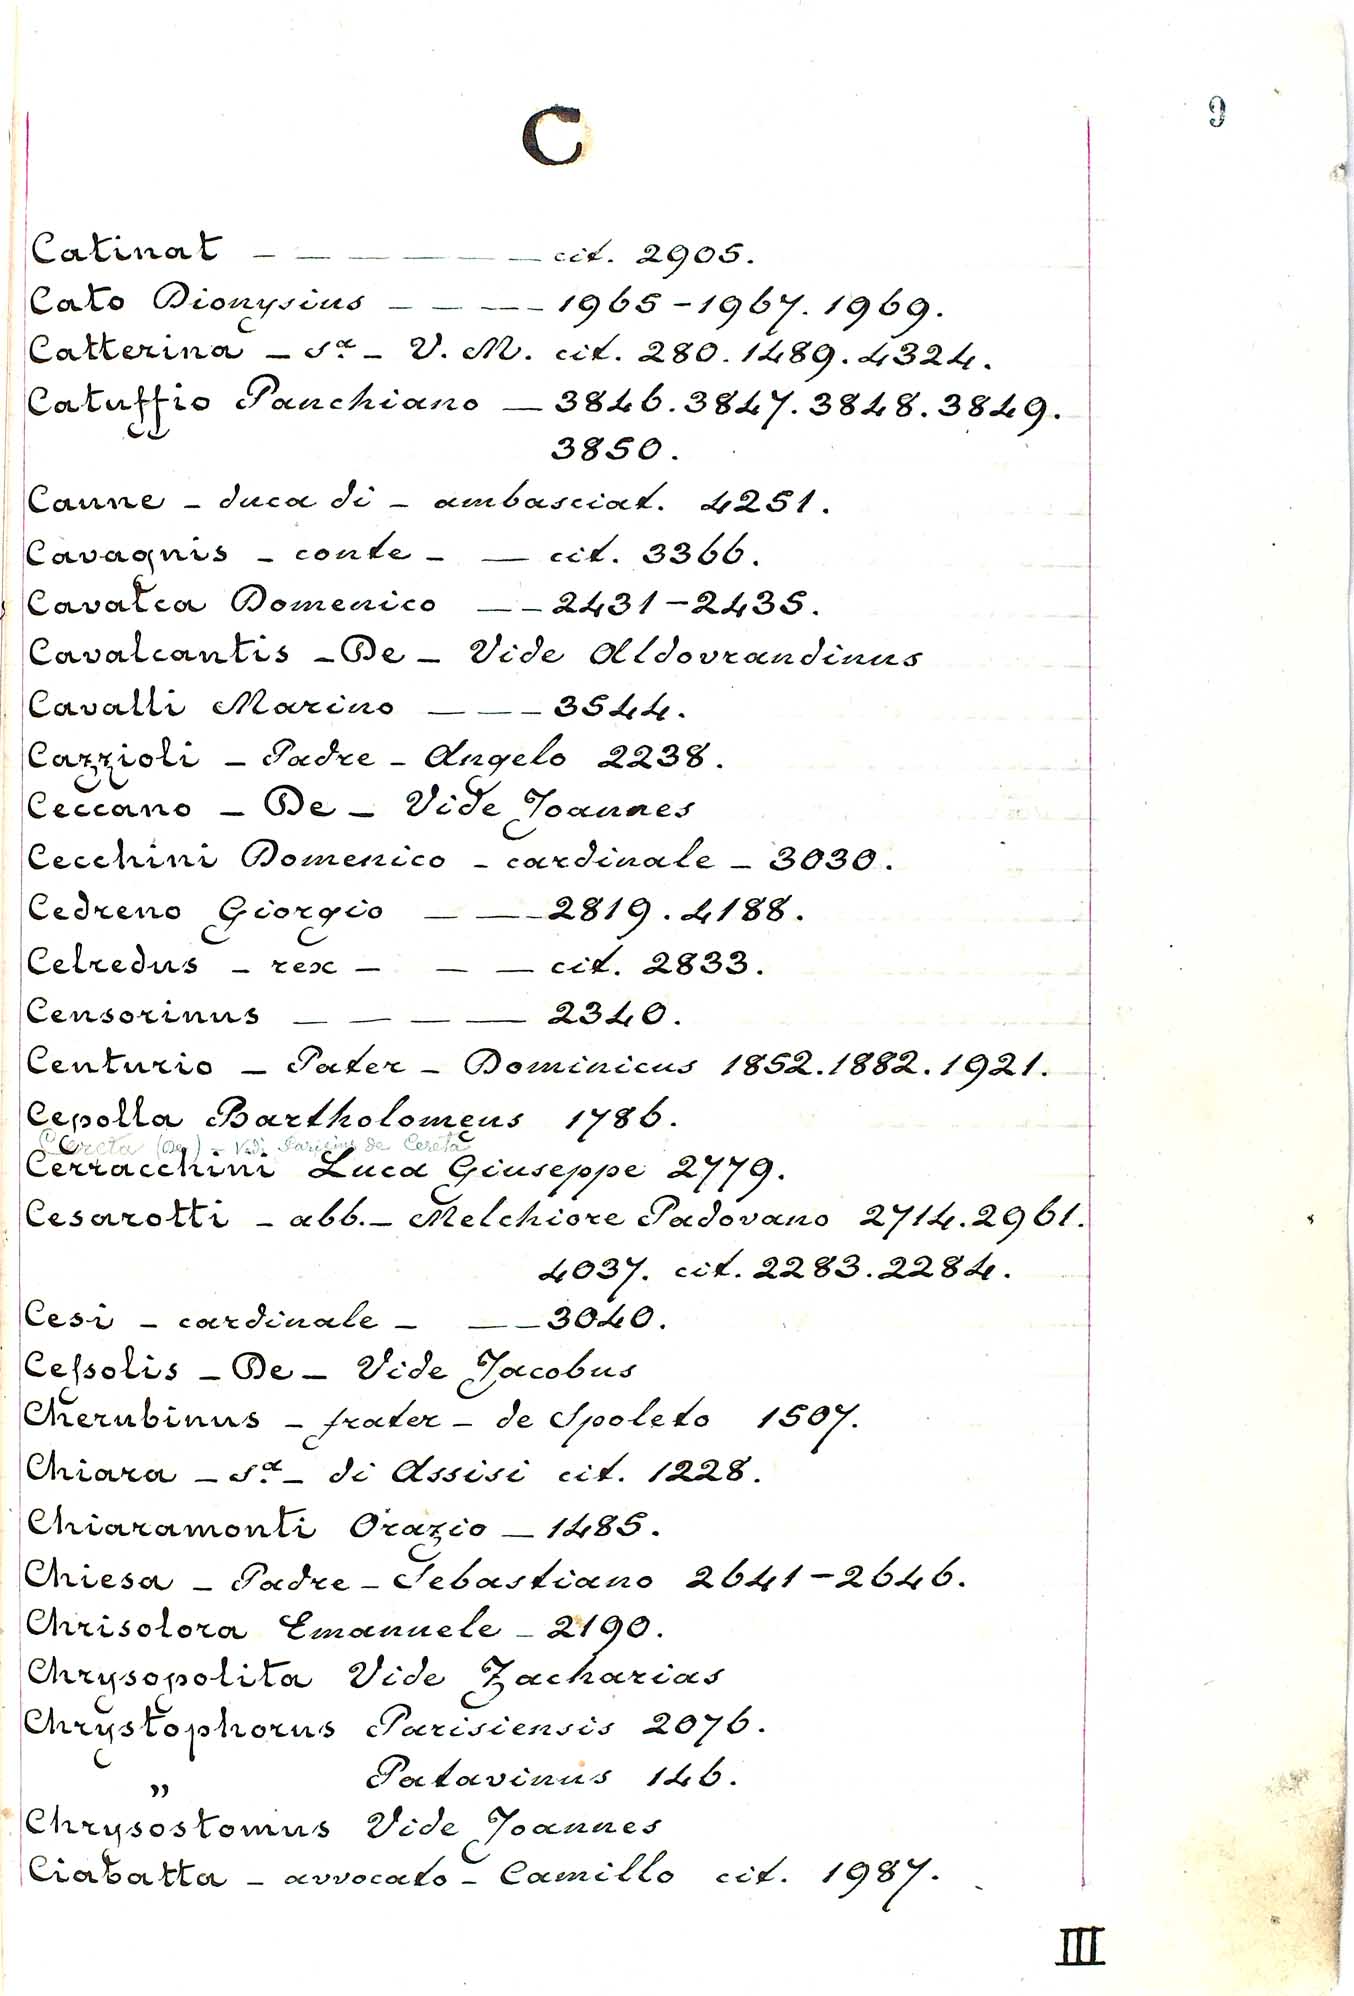 9
C
Catinat - - - - - - - cit. 2905.
Cato Dionysius - - - - 1965-1967. 1969.
Catterina - S.ª - V. M. cit. 280. 1489. 4324.
Catuffio Panchiano - 3846. 3847. 3848. 3849.
3850.
Caune - duca di - ambasciat. 4251.
Cavagnis - conte - - cit. 3366.
Cavalca Domenico - - 2431-2435.
Cavalcantis - De - Vide Aldovrandinus
Cavalli Marino - - - 3544.
Cazzioli - Padre - Angelo 2238.
Ceccano - De - Vide Joannes
Cecchini Domenico - cardinale - 3030.
Cedreno Giorgio - - - 2819. 4188.
Celredus - rex - - - cit. 2833.
Censorinus - - - - 2340.
Centurio - Pater - Dominicus 1852. 1882. 1921.
Cepolla Bartholomeus 1786.
Cereta (De) - Vedi Parisius de Cereta
Cerracchini Luca Giuseppe 2779.
Cesarotti - abb. - Melchiore Padovano 2714. 2961.
4037. cit. 2283. 2284.
Cesi - cardinale - - - 3040.
Ceſsolis - De - Vide Jacobus
Cherubinus - frater - de Spoleto 1507.
Chiara - S.ª - di Assisi cit. 1228.
Chiaramonti Orazio - 1485.
Chiesa - Padre - Sebastiano 2641-2646.
Chrisolora Emanuele - 2190.
Chrysopolita Vide Zacharias
Chrystophorus Parisiensis 2076.
„ Patavinus 146.
Chrysostomus Vide Joannes
Ciabatta - avvocato - Camillo cit. 1987.
III